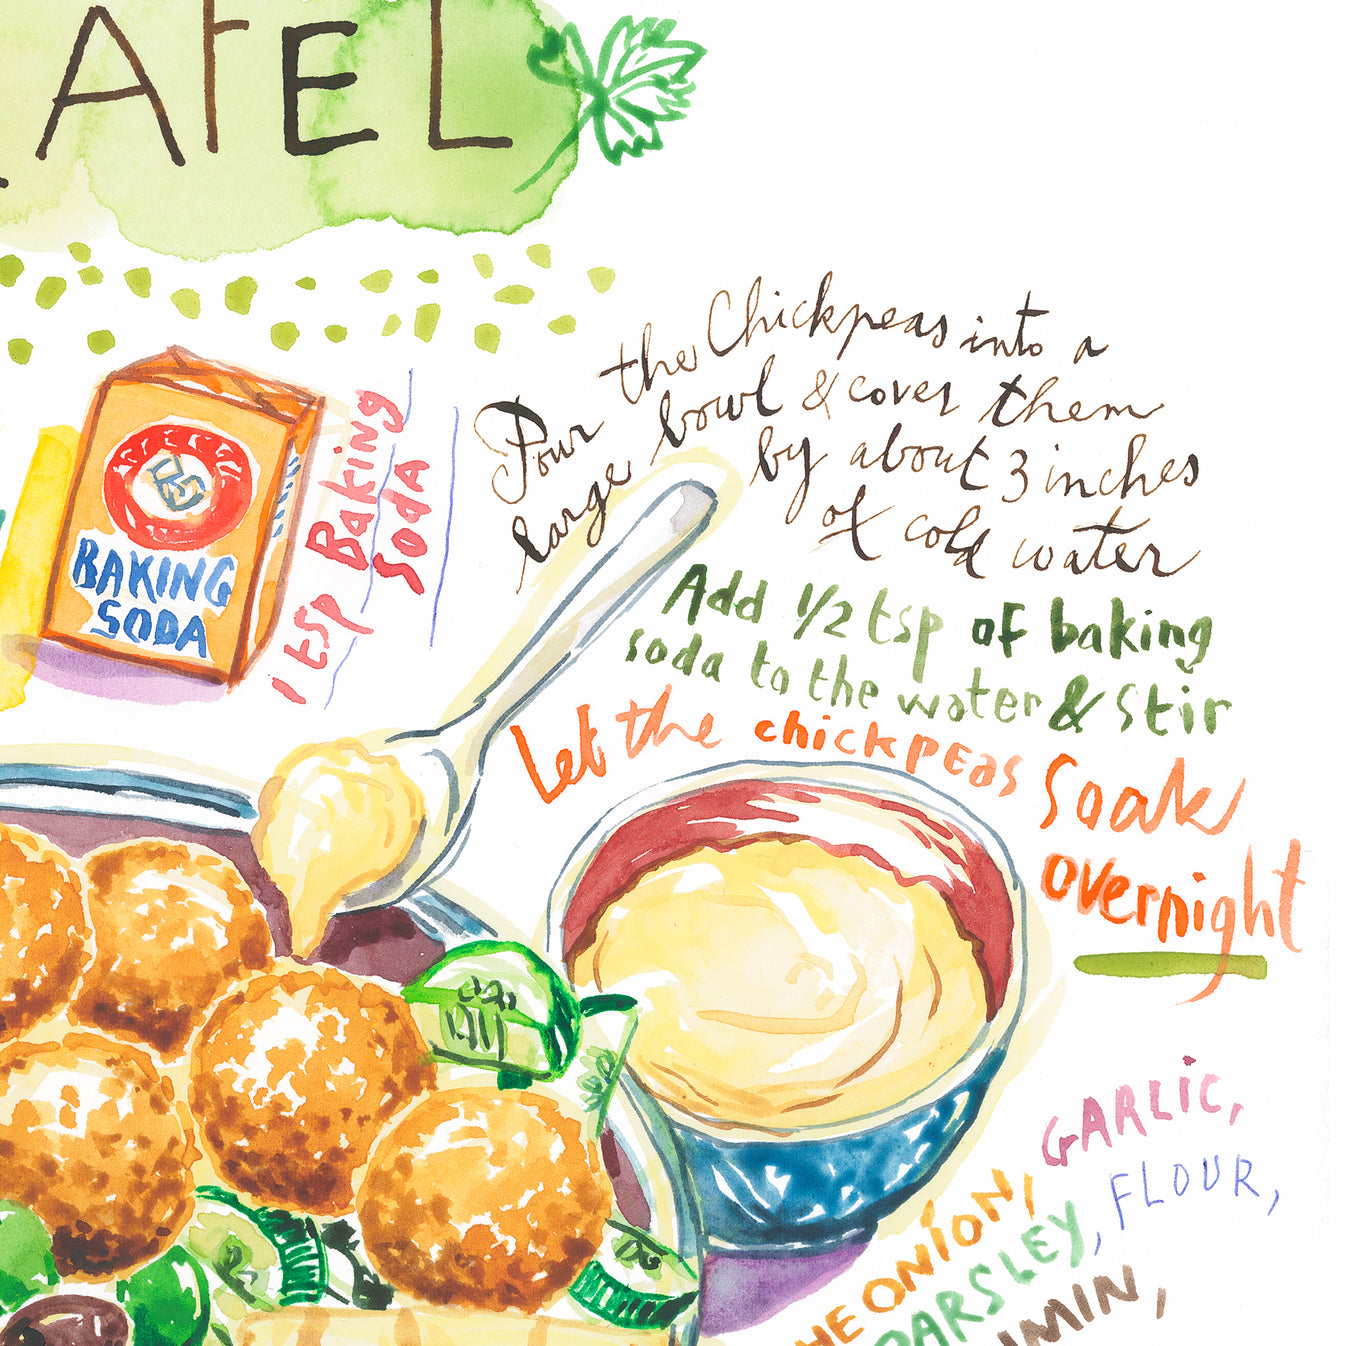 AFEL
BS
BAKING
SODA
1 tsp Baking
Soda
Pour the Chickpeas into a
large bowl & cover them
by about 3 inches
of cold water
Add 1/2 tsp of baking
soda to the water & stir
Let the chickpeas Soak
overnight
HE ONION, GARLIC,
PARSLEY, FLOUR,
UMIN,